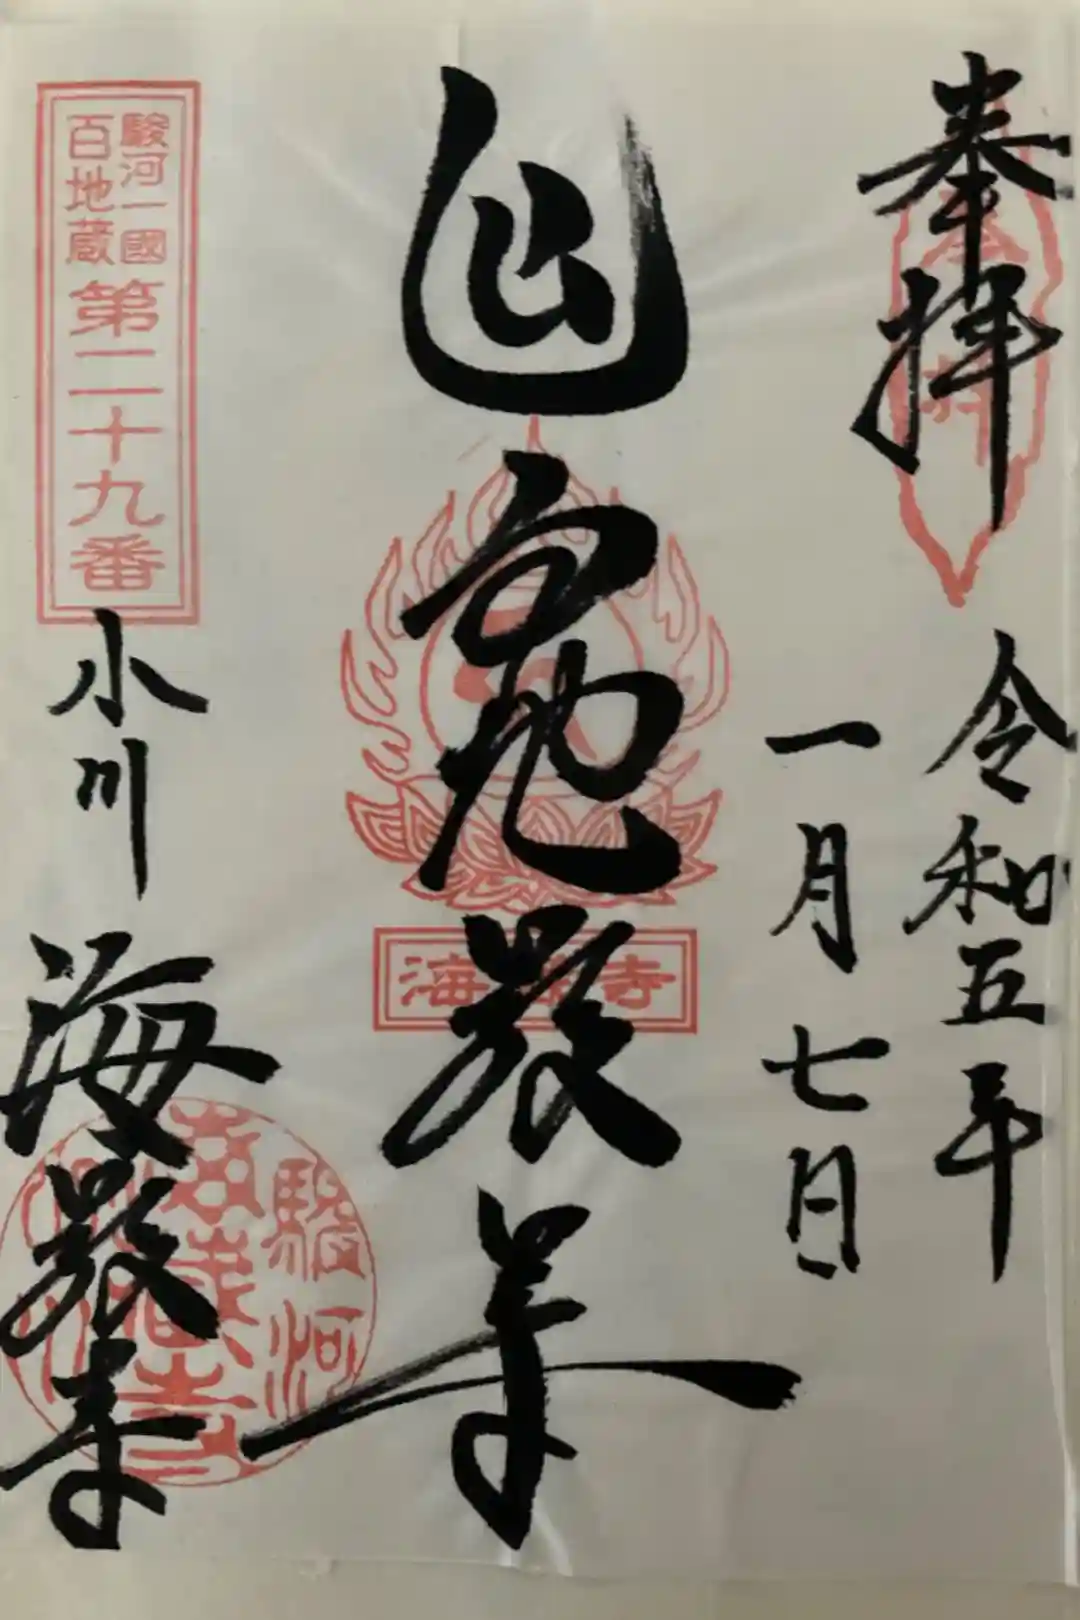 奉拝
令和五年
一月七日
地蔵尊
海蔵寺
駿河一國
百地蔵
第二十九番
小川
海蔵寺
駿河